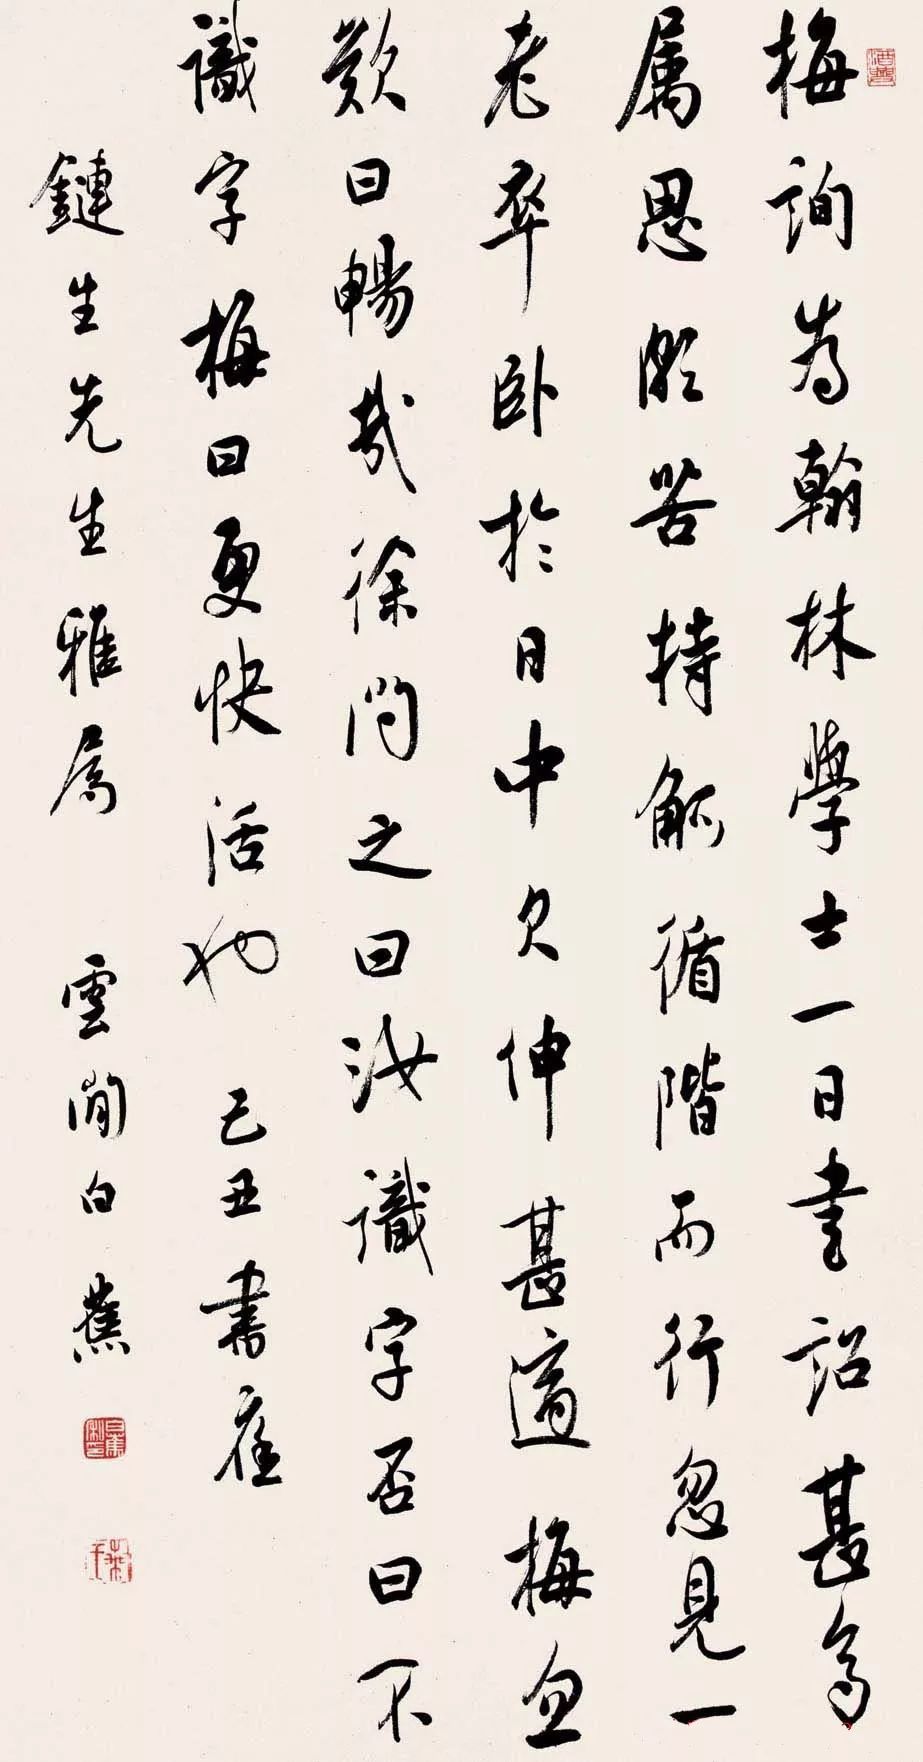 梅詢為翰林學士一日書詔甚多
属思頗苦持觚循階而行忽見一
老卒卧於日中欠伸甚適梅忽
歎曰暢哉徐問之曰汝識字否曰不
識字梅曰更快活也 己丑書應
鏈生先生雅屬 雲間白蕉